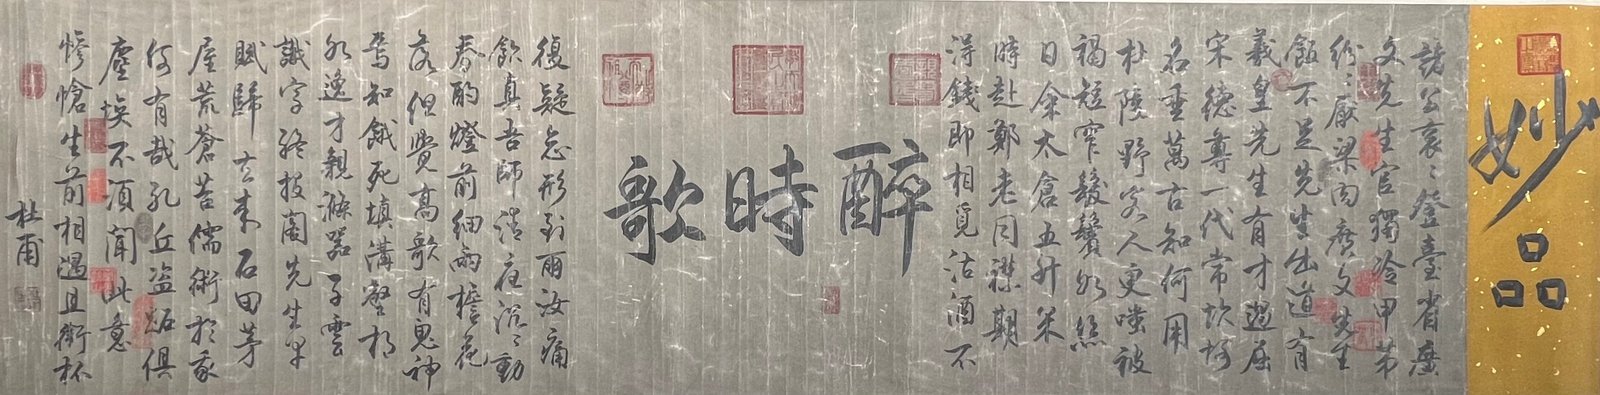 妙品
諸公袞〻登臺省廣
文先生官獨冷甲第
紛〻厭梁肉廣文先生
飯不足先生出道有
羲皇先生有才過屈
宋德尊一代常坎坷
名垂萬古知何用
杜陵野客人更嗤被
褐短窄髮鬢如絲
日余太倉五升米
時赴鄭老同襟期
得錢即相覓沽酒不
醉時歌
復疑忘形到爾汝痛
飲真吾師清夜沉〻動
春酌燈前細雨檐花
落但覺高歌有鬼神
焉知餓死填溝壑相
如逸才親滌器子雲
識字終投閣先生早
賦歸去來石田茅
屋荒蒼苔儒術於我
何有哉孔丘盜跖俱
塵埃不須聞此意
慘愴生前相遇且銜杯
杜甫